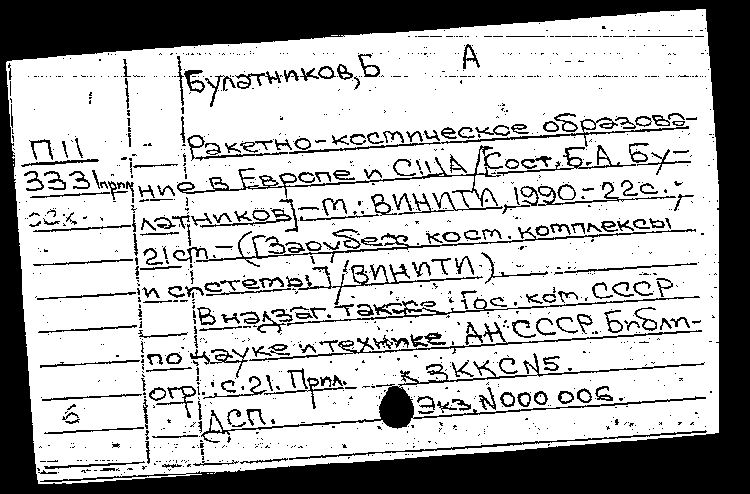 Булатников, Б А
Ракетно-космическое образова-
П11
3331прил ние в Европе и США / [Сост. Б. А. Бу-
латников]. - М.: ВИНИТИ, 1990. - 22 с.;
21 см. - ([Зарубеж косм. комплексы
и системы] / ВИНИТИ.).
В надзаг. также: Гос. ком. СССР
по науке и технике, АН СССР. Библи-
огр.: с. 21. Прил. к ЗККС N5.
6 ДСП. Экз. N 000 006.